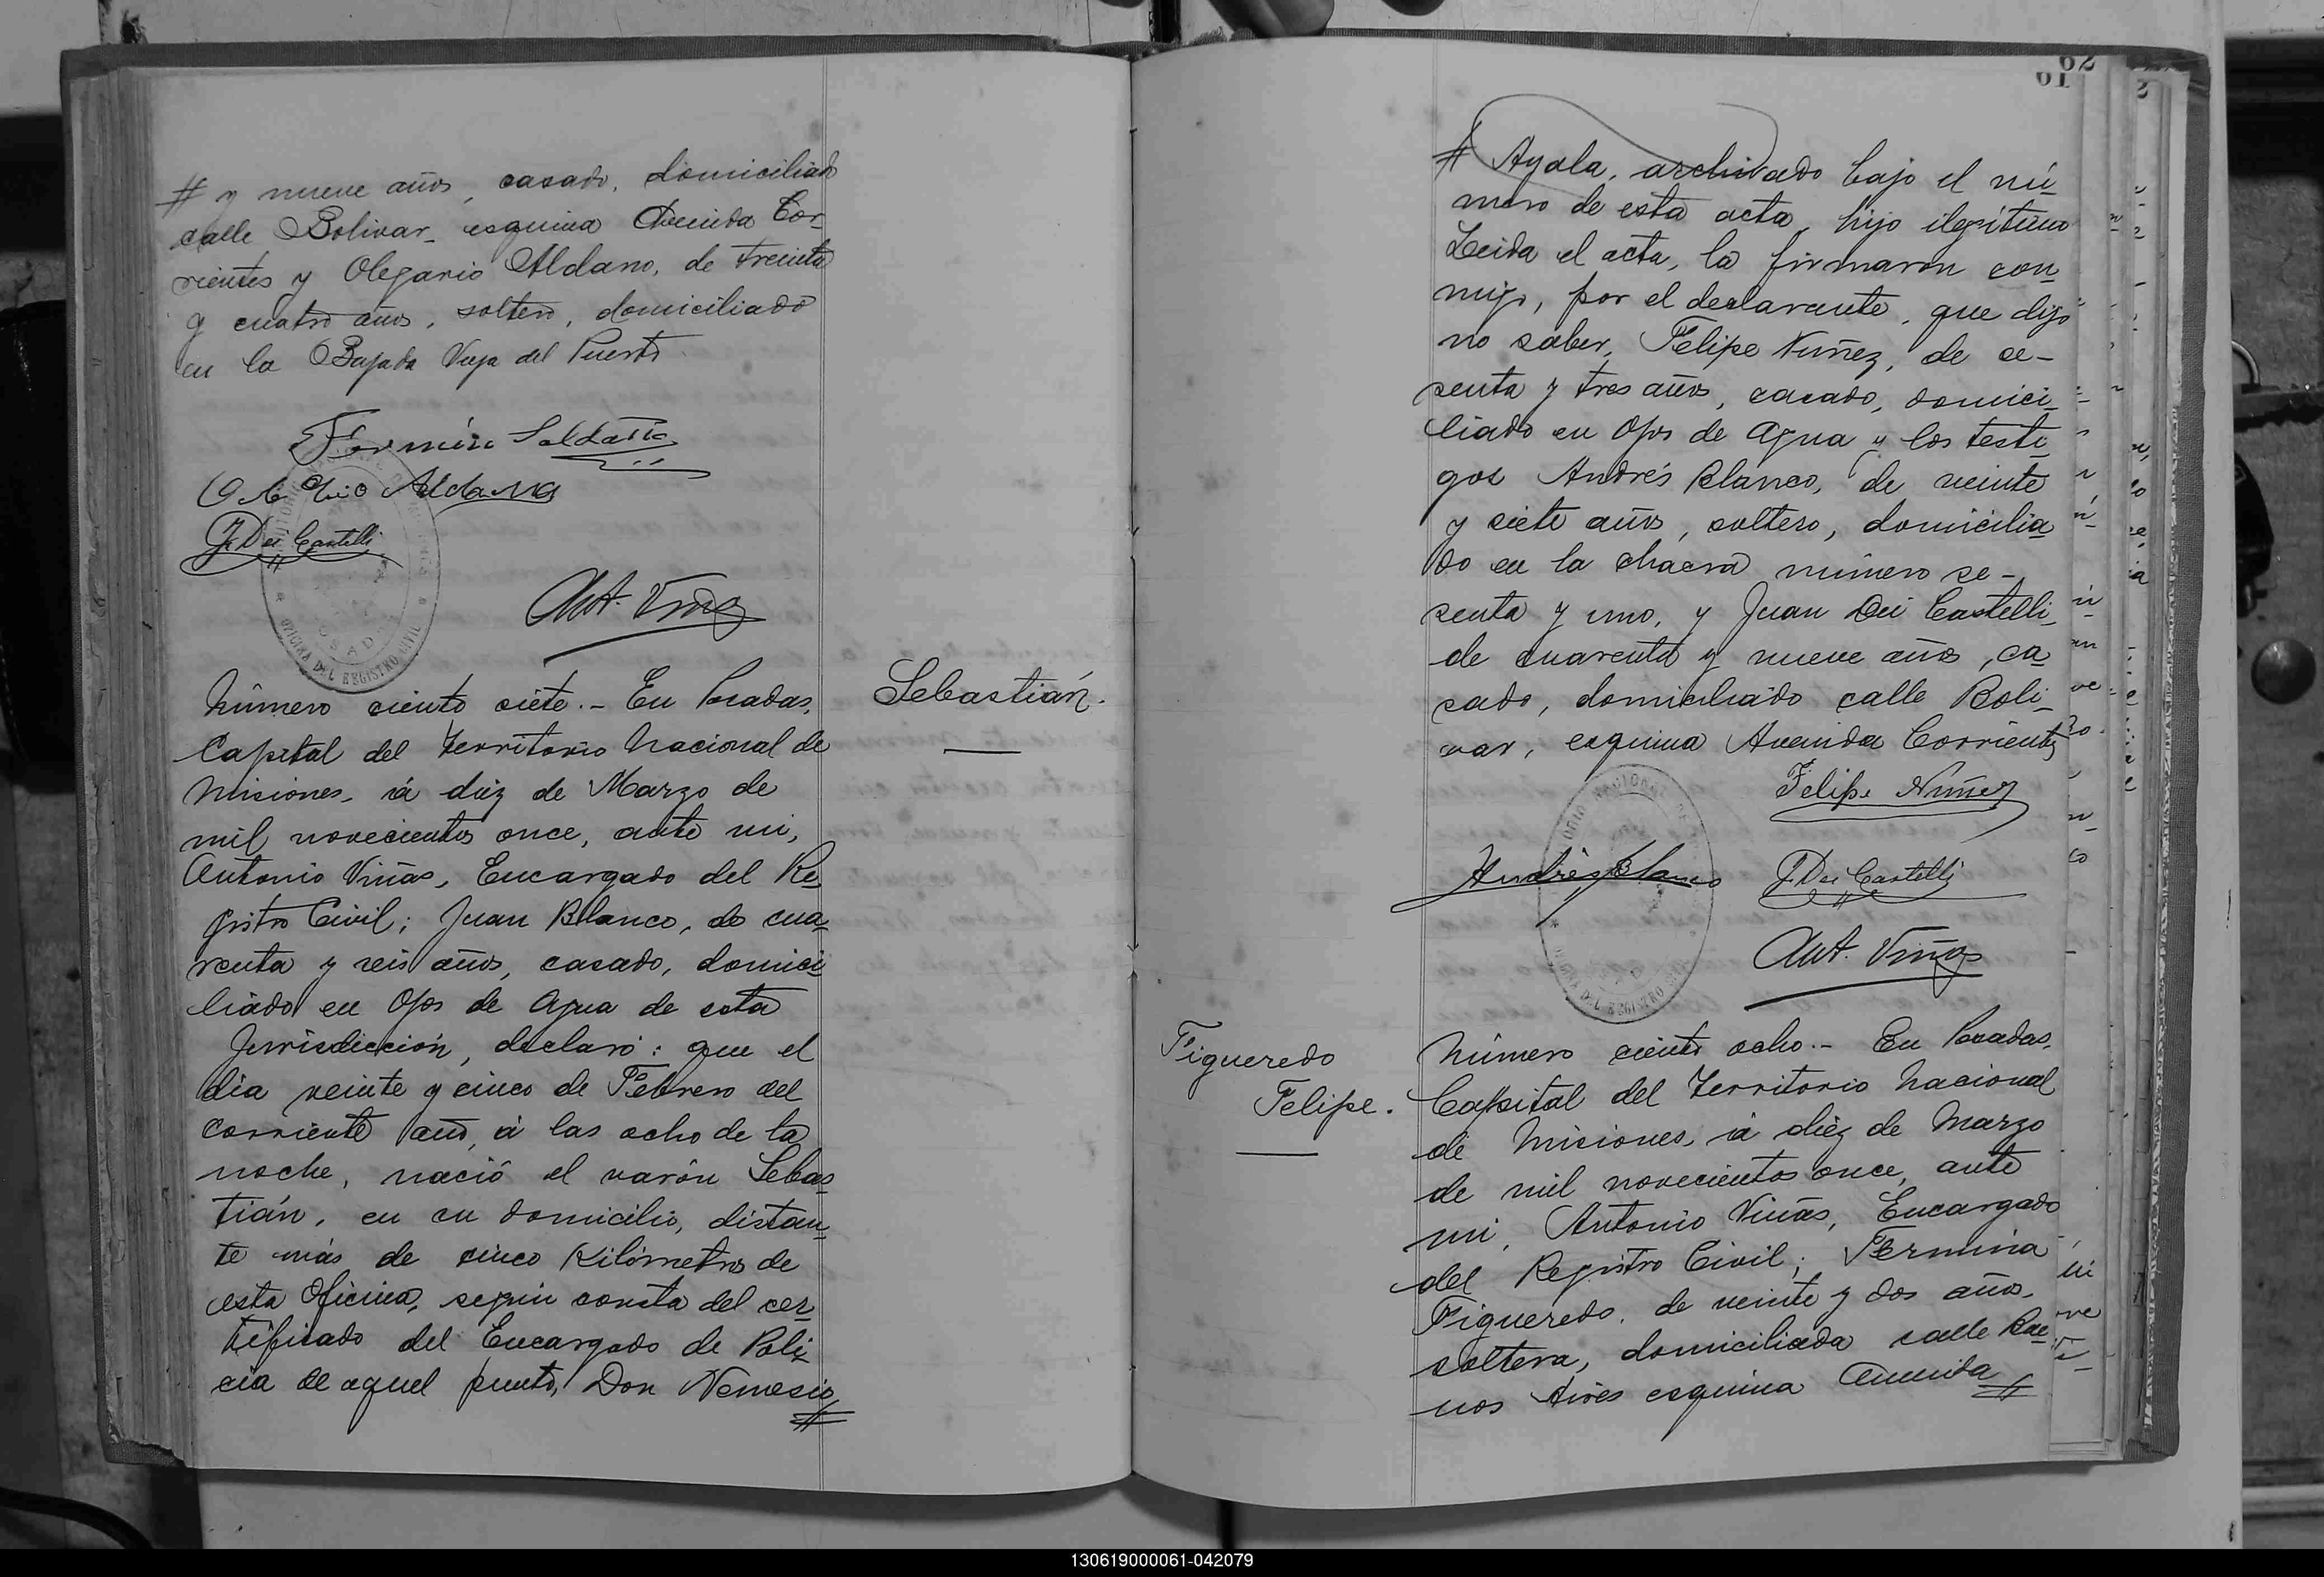 # y nueve años, casado, domiciliado
calle Bolivar esquina Avenida Cor-
rientes y Olegario Aldano, de treinta
y cuatro años, soltero, domiciliado
en la Bajada Vieja del Puerto
Fermín Saldaña
Aldana
J. Dei Castelli
Ant. Viñas
OFICINA DEL REGISTRO CIVIL
Número ciento siete.- En Posadas,
Capital del Territorio Nacional de
Misiones, á diez de Marzo de
mil novecientos once, ante mi,
Antonio Viñas, Encargado del Re-
gistro Civil; Juan Blanco, de cua-
renta y seis años, casado, domici-
liado en Ojos de Agua de esta
Jurisdicción, declaró: que el
dia veinte y cinco de Febrero del
corriente año, á las ocho de la
noche, nació el varón Sebas-
tián, en su domicilio, distan-
te más de cinco Kilómetros de
esta Oficina, segun consta del cer-
tificado del Encargado de Poli-
cia de aquel punto, Don Nemesio
#
Sebastián.
62
61
# Ayala, archivado bajo el nú-
mero de esta acta, hijo ilegítimo
Leida el acta, la firmaron con-
migo, por el declarante, que dijo
no saber, Felipe Nuñez, de se-
senta y tres años, casado, domici-
liado en Ojos de Agua y los testi-
gos Andrés Blanco, de veinte
y siete años, soltero, domicilia-
do en la chacra número se-
senta y uno, y Juan Dei Castelli,
de cuarenta y nueve años, ca-
sado, domiciliado calle Boli-
var, esquina Avenida Corrientes
Felipe Nuñez
Andrés Blanco
J. Dei Castelli
Ant. Viñas
Figueredo
Felipe.
Número ciento ocho.- En Posadas,
Capital del Territorio Nacional
de Misiones, á diez de Marzo
de mil novecientos once, ante
mi, Antonio Viñas, Encargado
del Registro Civil; Fermina
Figueredo, de veinte y dos años,
soltera, domiciliada calle Bue-
nos Aires esquina Avenida
#
130619000061-042079